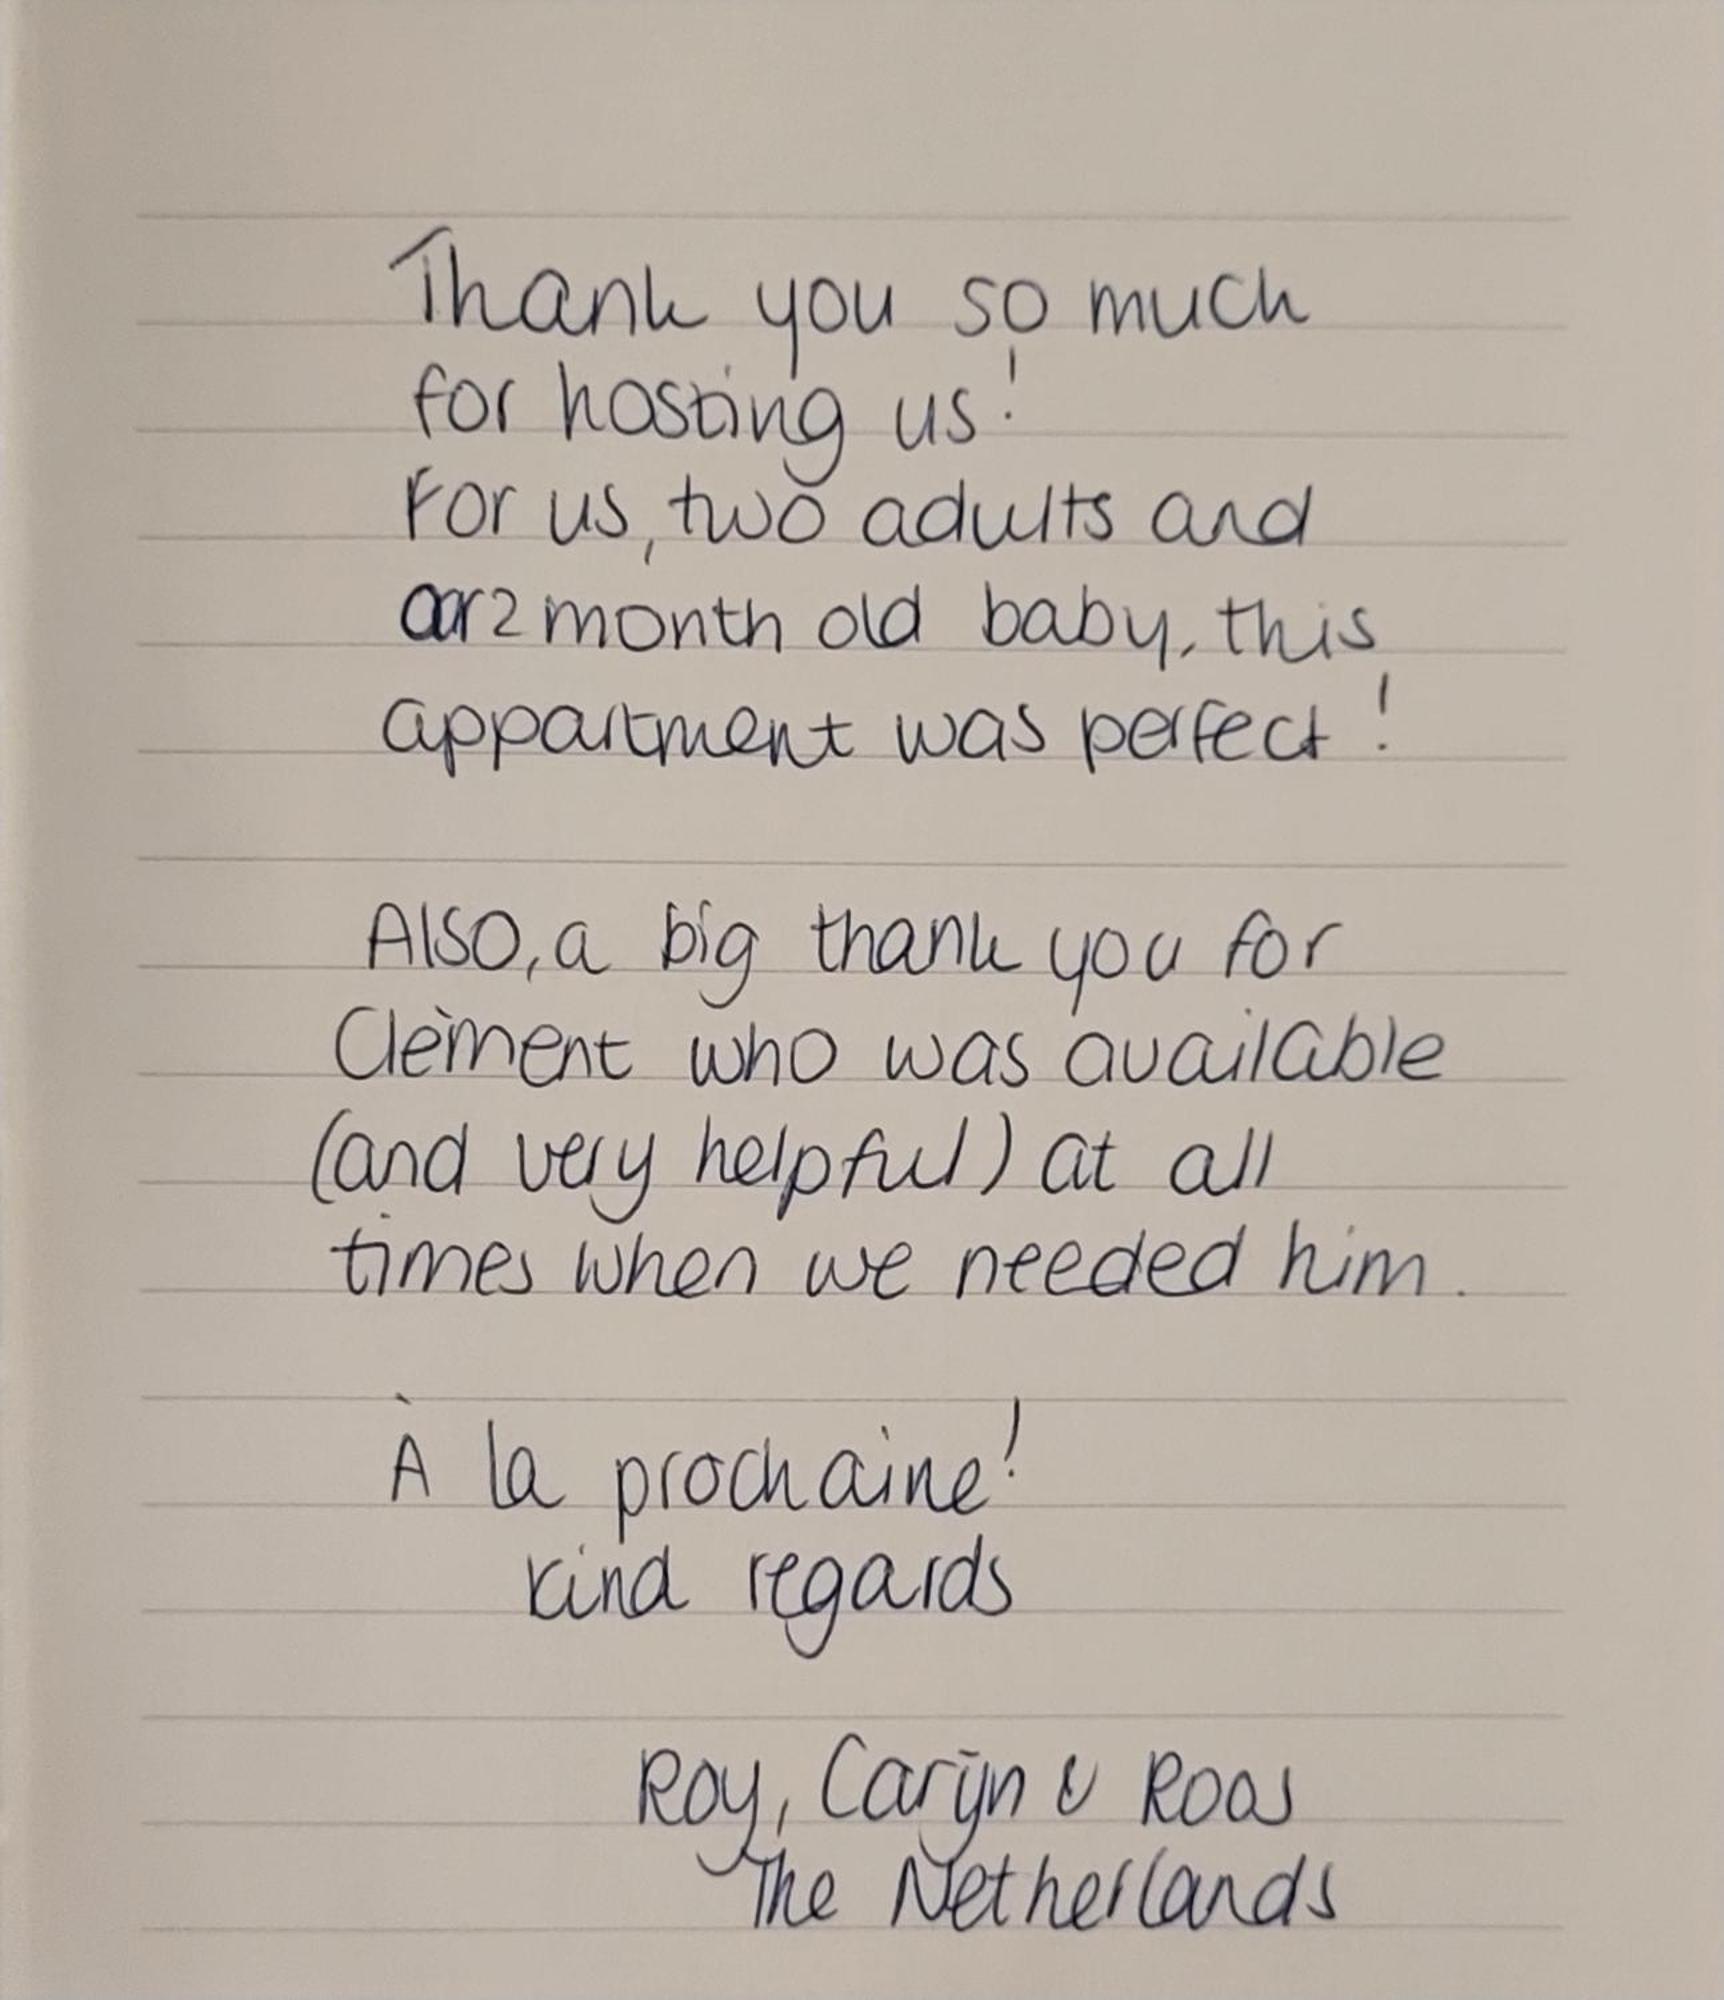 Thank you so much
for hosting us!
For us, two adults and
our 2 month old baby, this
appartment was perfect!
Also, a big thank you for
Clèment who was available
(and very helpful) at all
times when we needed him.
À la prochaine!
kind regards
Roy, Carijn & Roos
The Netherlands